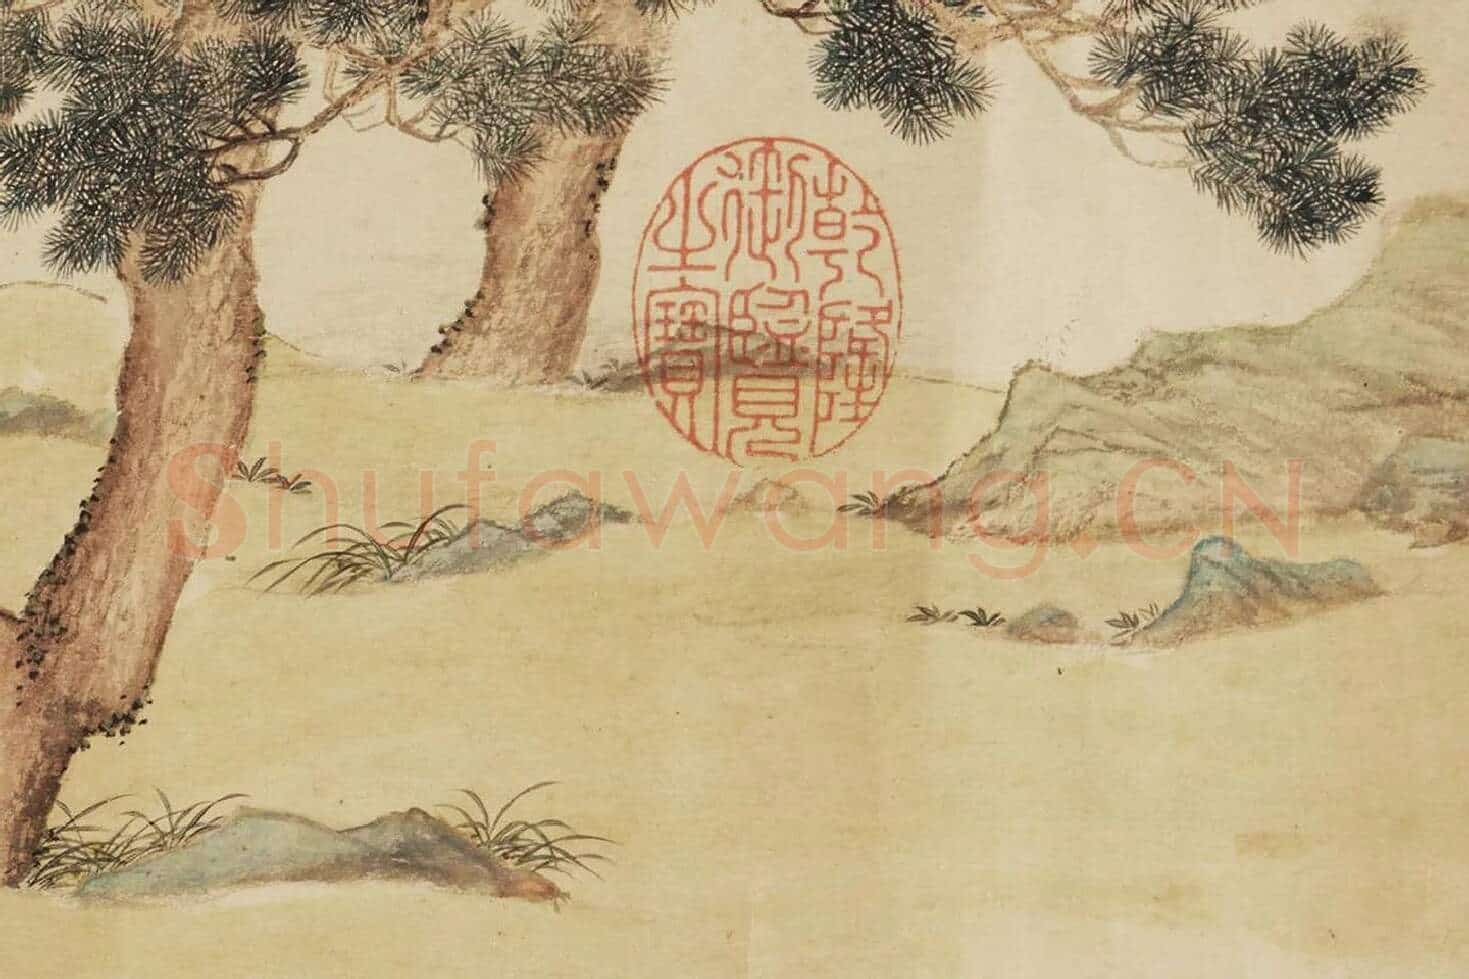 乾隆
御覽
之寶
Shufawang.CN